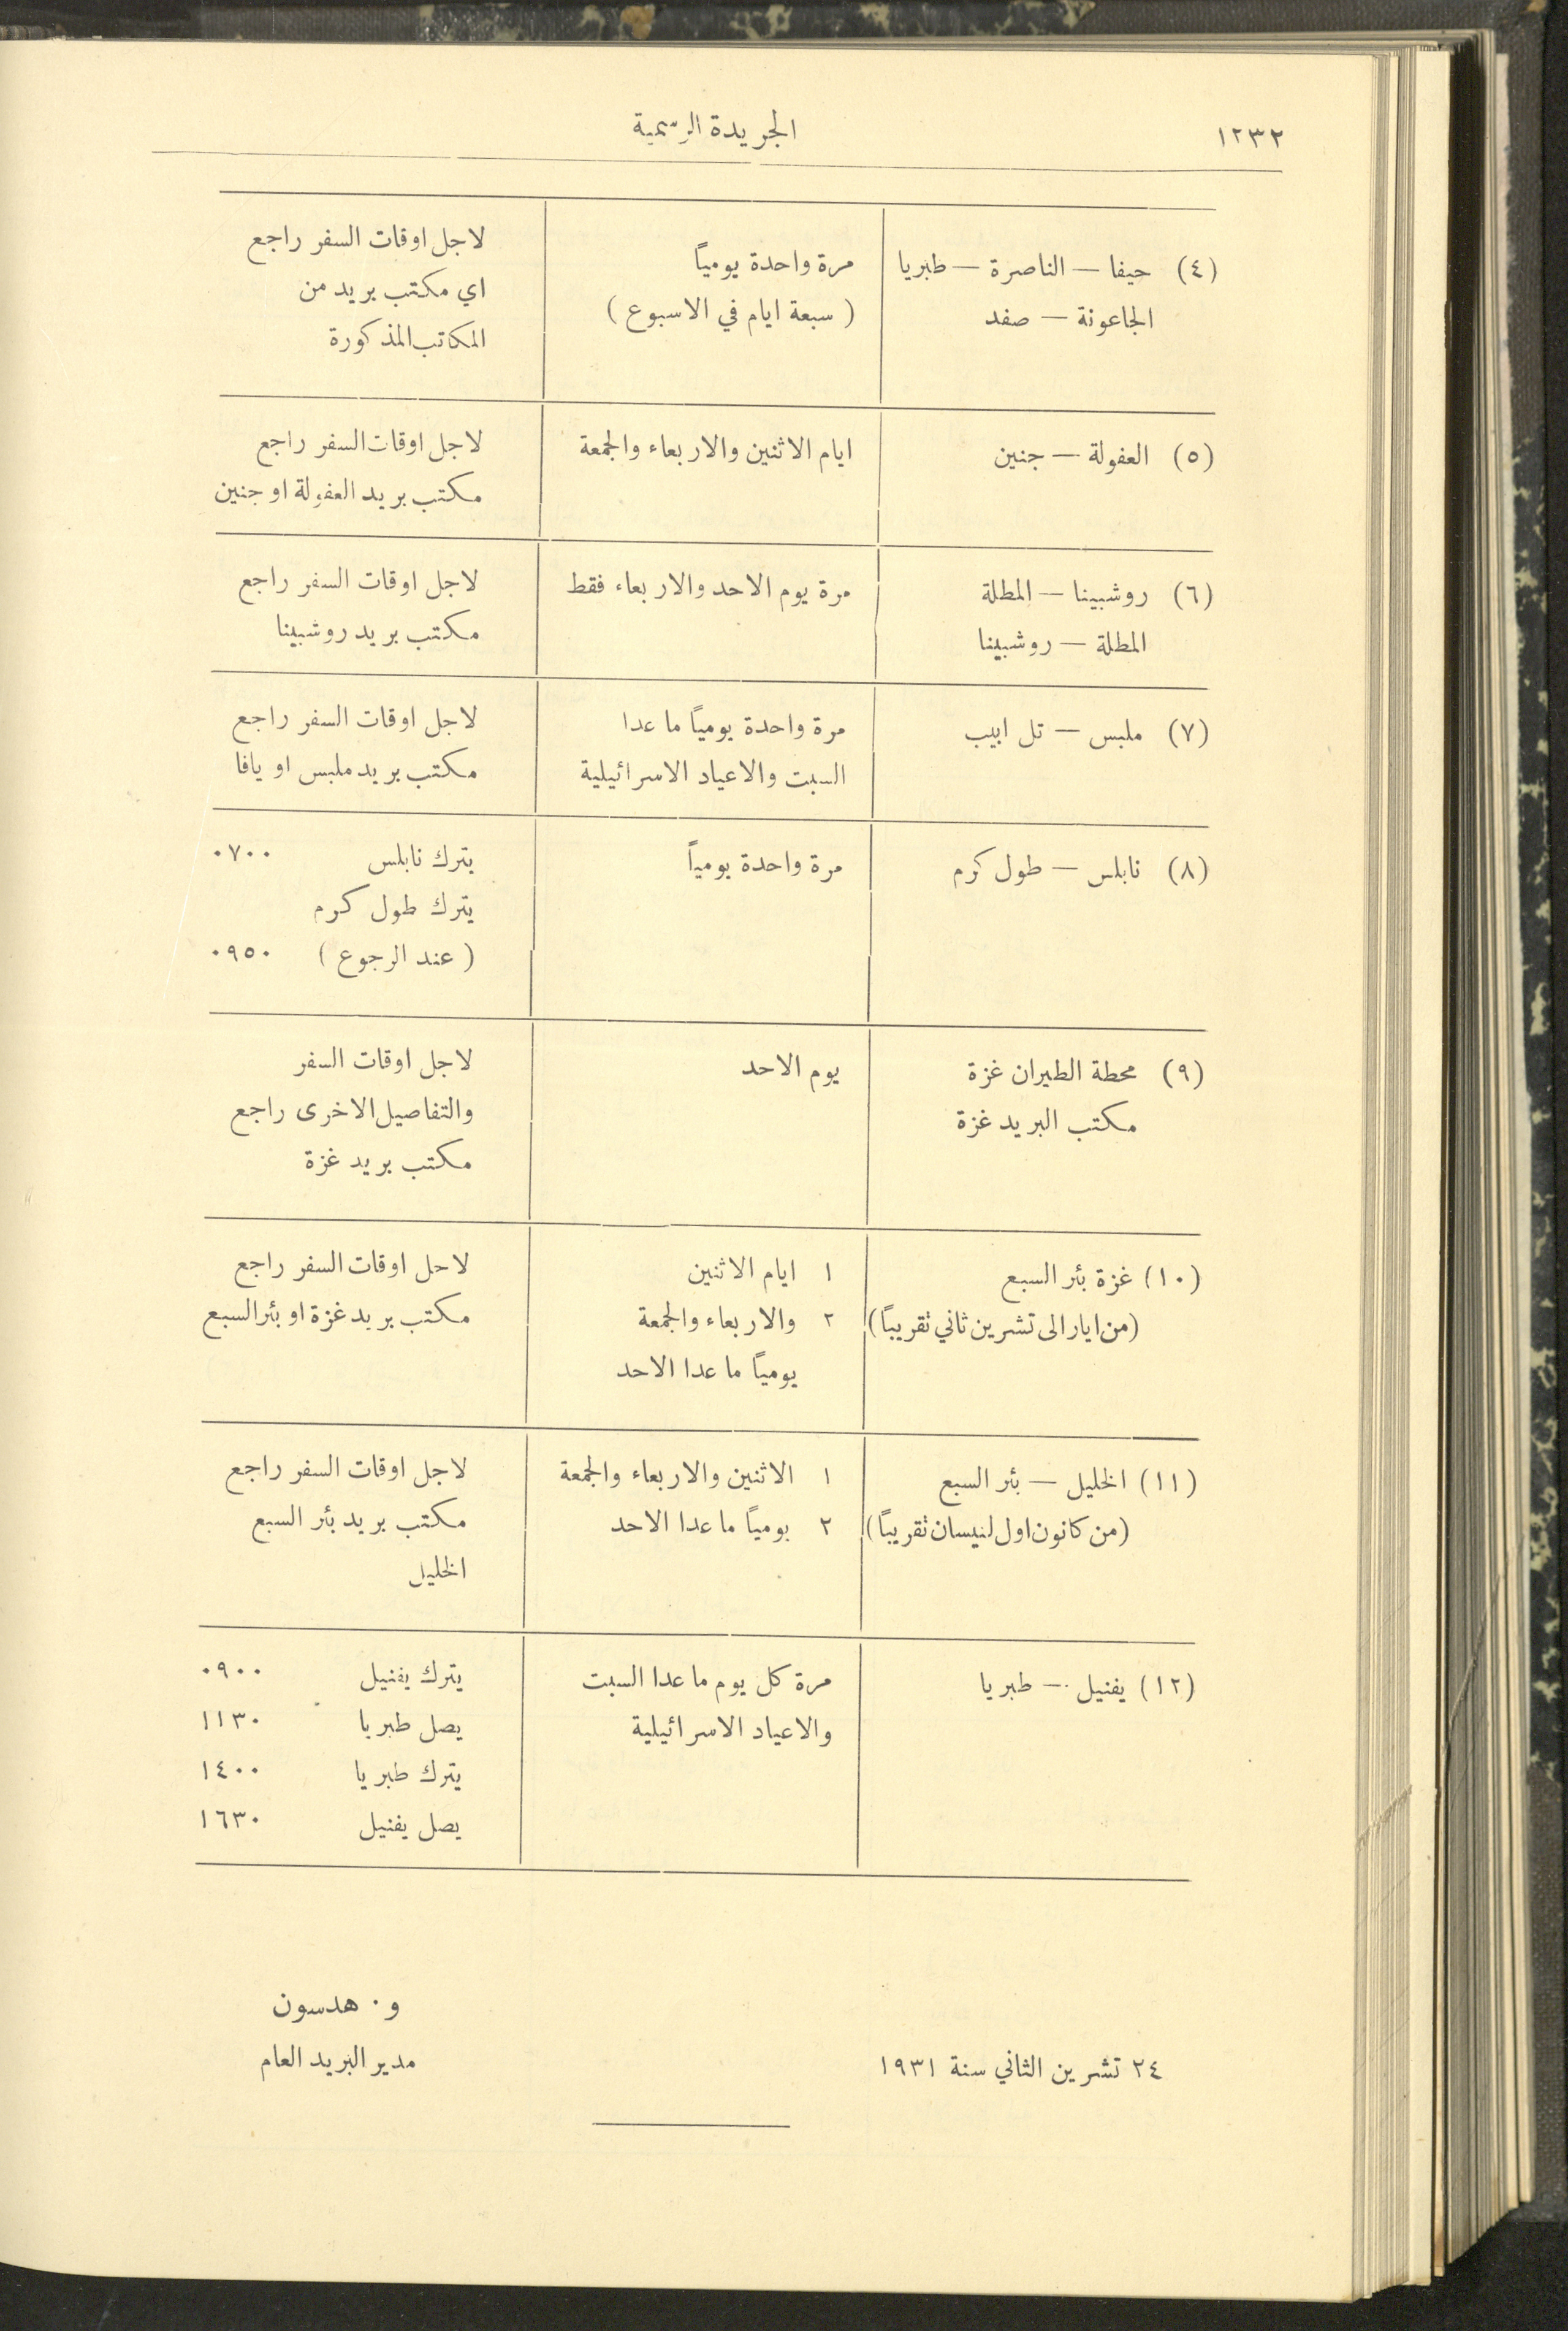 ١٢٣٢
الجريدة الرسمية
(٤) حيفا — الناصرة — طبريا
الجاعونة — صفد
مرة واحدة يومياً
( سبعة ايام في الاسبوع )
لاجل اوقات السفر راجع
اي مكتب بريد من
المكاتب المذكورة
(٥) العفولة — جنين
ايام الاثنين والاربعاء والجمعة
لاجل اوقات السفر راجع
مكتب بريد العفولة او جنين
(٦) روشبينا — المطلة
المطلة — روشبينا
مرة يوم الاحد والاربعاء فقط
لاجل اوقات السفر راجع
مكتب بريد روشبينا
(٧) ملبس — تل ابيب
مرة واحدة يومياً ما عدا
السبت والاعياد الاسرائيلية
لاجل اوقات السفر راجع
مكتب بريد ملبس او يافا
(٨) نابلس — طول كرم
مرة واحدة يومياً
يترك نابلس ٠٧٠٠
يترك طول كرم
( عند الرجوع ) ٠٩٥٠
(٩) محطة الطيران غزة
مكتب البريد غزة
يوم الاحد
لاجل اوقات السفر
والتفاصيل الاخرى راجع
مكتب بريد غزة
(١٠) غزة بئر السبع
(من ايار الى تشرين ثاني تقريباً)
١ ايام الاثنين
٢ والاربعاء والجمعة
يومياً ما عدا الاحد
لاجل اوقات السفر راجع
مكتب بريد غزة او بئر السبع
(١١) الخليل — بئر السبع
(من كانون اول لنيسان تقريباً)
١ الاثنين والاربعاء والجمعة
٢ يومياً ما عدا الاحد
لاجل اوقات السفر راجع
مكتب بريد بئر السبع
الخليل
(١٢) يفنيل — طبريا
مرة كل يوم ما عدا السبت
والاعياد الاسرائيلية
يترك يفنيل ٠٩٠٠
يصل طبريا ١١٣٠
يترك طبريا ١٤٠٠
يصل يفنيل ١٦٣٠
و. هدسون
مدير البريد العام
٢٤ تشرين الثاني سنة ١٩٣١